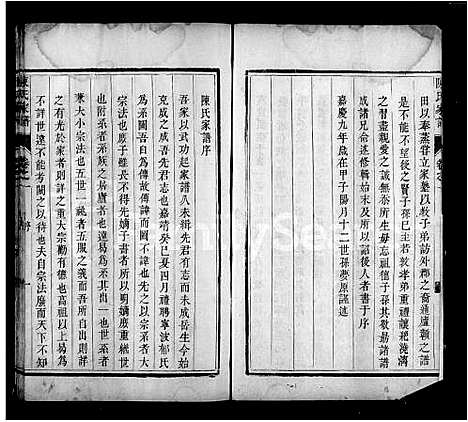 陳氏家譜
田以奉蒸甞立家塾以教子弟訪外郡之裔進廬巔之譜
是不能不望後之賢子孫已圭若敦孝弟重禮讓
之習盡親愛之誠無忝所生毋忘祖德子孫其敬勗諸
成諸兄命述修輯始末及所以詔後人者書于序
嘉慶九年歲在甲子陽月十二世孫夢原謹述
陳氏家譜序
吾家以武功起家譜久未緝先君有志而未成岳生今始
克成之成吾先君志也嘉靖癸巳夏四月禮聘寧波郁氏
為系圖吾自為傳故傳諱而圖不諱也先之以宗系者大
宗法也庶子雖長不得先嫡子者所以明嫡庶重繼世
也附系者系族之居賣者也世者系其出一也世系
兼大小宗法也五世一提者五服之義而吾所自出則詳
之有光於家者則詳之重大宗勸有德也高祖以上易為
不詳世遠不能考闕之以待也夫自宗法廢而天下不知